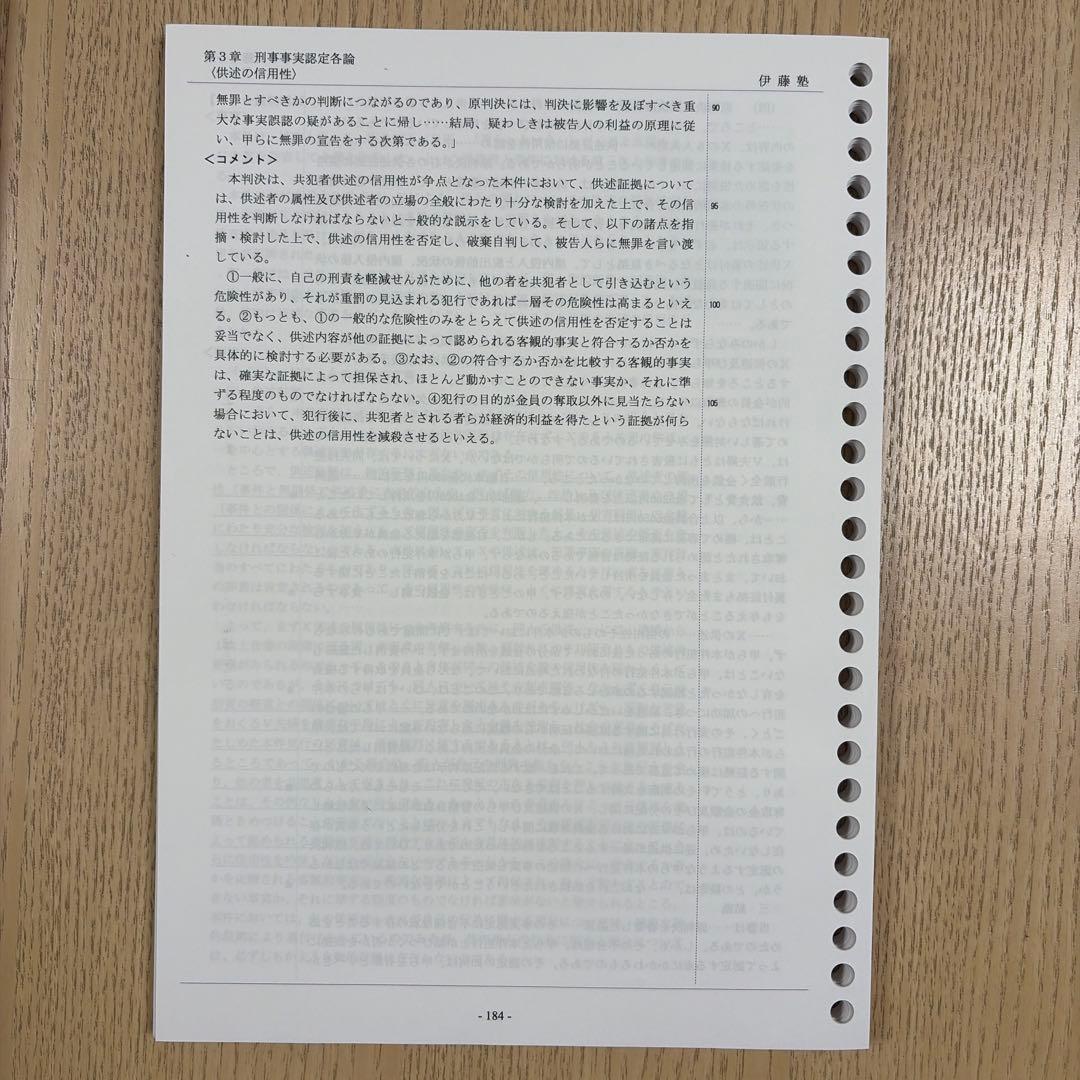 第3章 刑事事実認定各論
〈供述の信用性〉
伊藤塾
無罪とすべきかの判断につながるのであり、原判決には、判決に影響を及ぼすべき重 90
大な事実誤認の疑があることに帰し……結局、疑わしきは被告人の利益の原理に従
い、甲らに無罪の宣告をする次第である。」
＜コメント＞
本判決は、共犯者供述の信用性が争点となった本件において、供述証拠について
は、供述者の属性及び供述者の立場の全般にわたり十分な検討を加えた上で、その信 95
用性を判断しなければならないと一般的な説示をしている。そして、以下の諸点を指
摘・検討した上で、供述の信用性を否定し、破棄自判して、被告人らに無罪を言い渡
している。
①一般に、自己の刑責を軽減せんがために、他の者を共犯者として引き込むという
危険性があり、それが重罰の見込まれる犯行であれば一層その危険性は高まるといえ 100
る。②もっとも、①の一般的な危険性のみをとらえて供述の信用性を否定することは
妥当でなく、供述内容が他の証拠によって認められる客観的事実と符合するか否かを
具体的に検討する必要がある。③なお、②の符合するか否かを比較する客観的事実
は、確実な証拠によって担保され、ほとんど動かすことのできない事実か、それに準
ずる程度のものでなければならない。④犯行の目的が金員の奪取以外に見当たらない 105
場合において、犯行後に、共犯者とされる者らが経済的利益を得たという証拠が何ら
ないことは、供述の信用性を減殺させるといえる。
- 184 -